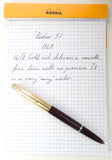 RHODIA
Parker 51
1948
16ct Gold nib delivers a smooth,
firm line with no pressure. It
is a very "easy" writer